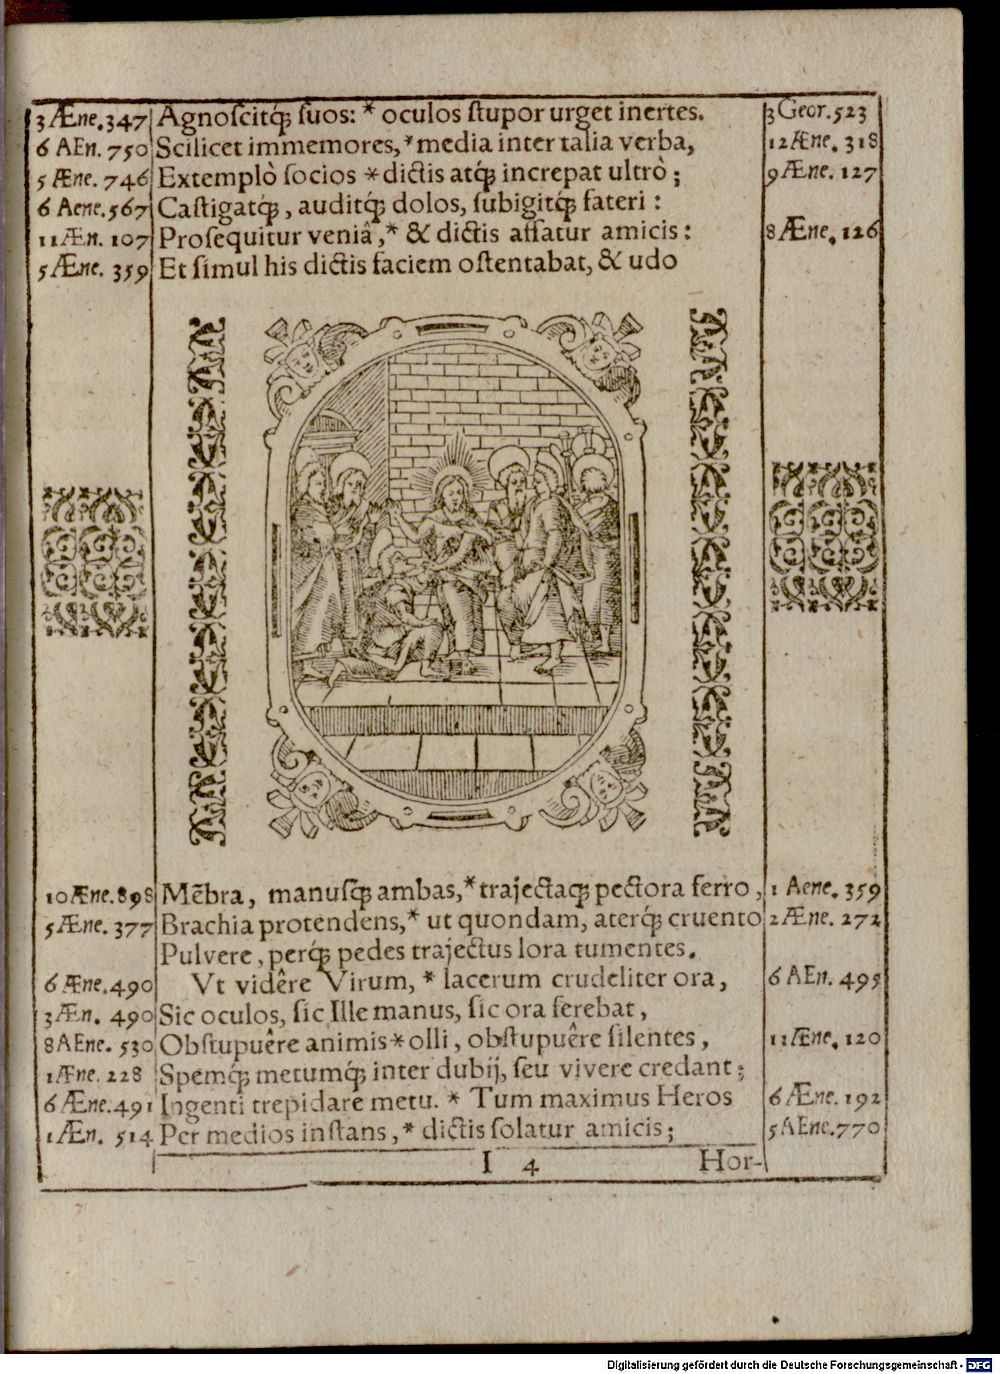 3 Æne. 347 Agnoscitq́; suos: * oculos stupor urget inertes. 3 Geor. 523
6 AEn. 750 Scilicet immemores, * media inter talia verba, 12 Æne. 318
5 Æne. 746 Extemplò socios * dictis atq́; increpat ultrò; 9 Æne. 127
6 Aene. 567 Castigatq́;, auditq́; dolos, subigitq́; fateri:
11 Æn. 107 Prosequitur veniâ, * & dictis affatur amicis: 8 Æne. 126
5 Æne. 359 Et simul his dictis faciem ostentabat, & udo
10 Æne. 898 Mẽbra, manusq́; ambas, * trajectaq́; pectora ferro, 1 Aene. 359
5 Æne. 377 Brachia protendens, * ut quondam, aterq́; cruento 2 Æne. 272
Pulvere, perq́; pedes trajectus lora tumentes.
6 Æne. 490 Vt vidêre Virum, * lacerum crudeliter ora, 6 AEn. 495
3 Æn. 490 Sic oculos, sic Ille manus, sic ora ferebat,
8 AEne. 530 Obstupuêre animis * olli, obstupuêre silentes, 11 Æne. 120
1 Æne. 228 Spemq́; metumq́; inter dubij, seu vivere credant;
6 Æne. 491 Ingenti trepidare metu. * Tum maximus Heros 6 Æne. 192
1 Æn. 514 Per medios instans, * dictis solatur amicis; 5 AEne. 770
I 4 Hor-
Digitalisierung gefördert durch die Deutsche Forschungsgemeinschaft - DFG